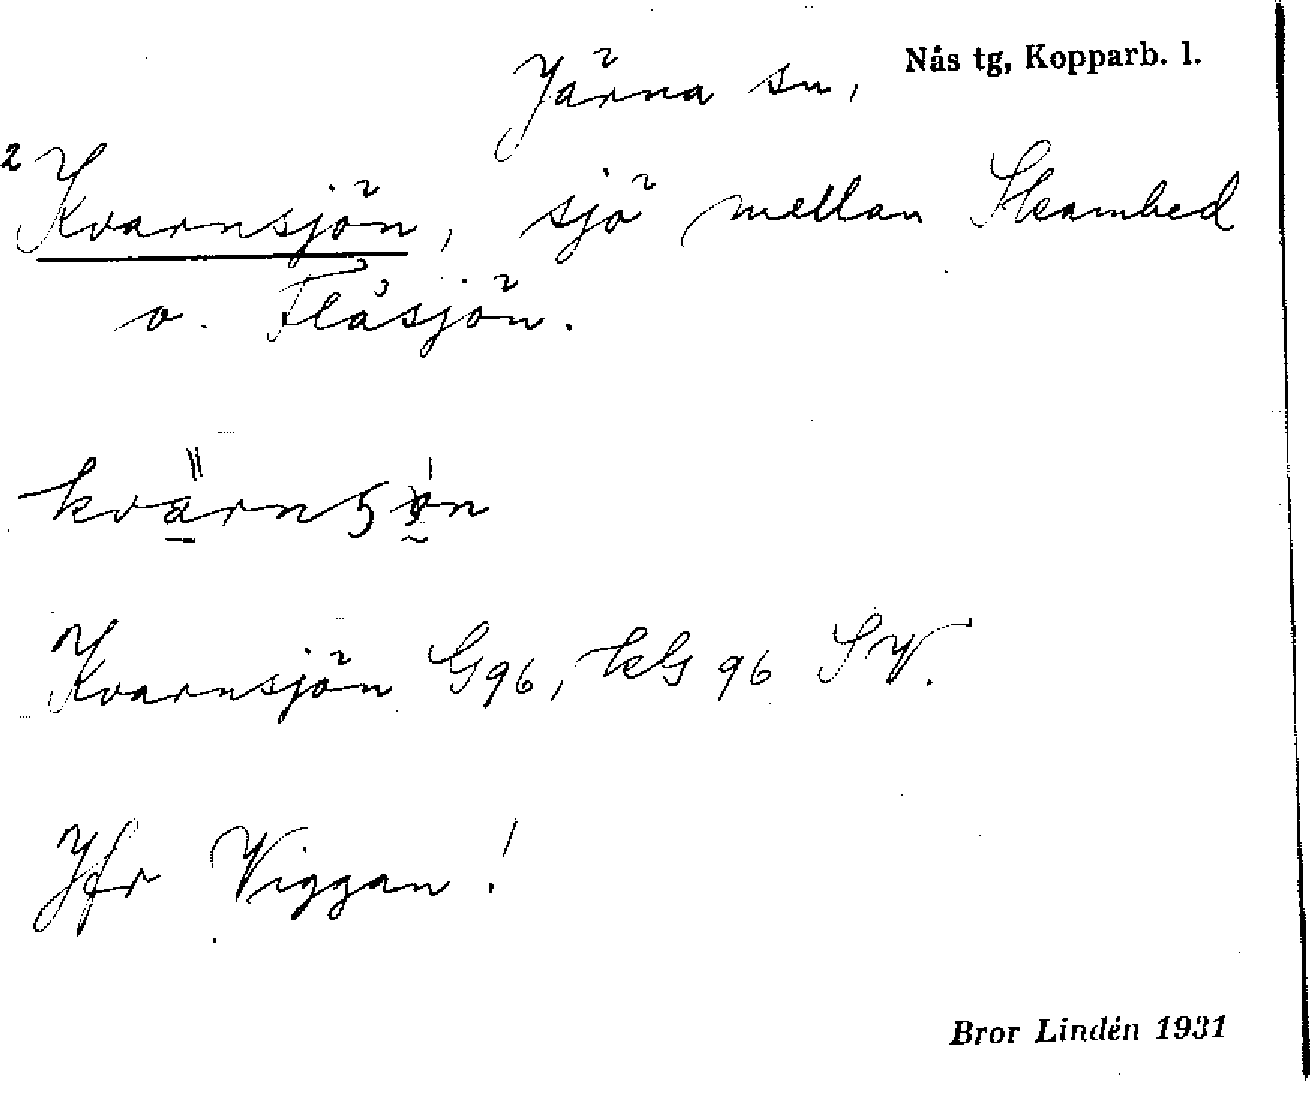 Järna sn, Nås tg, Kopparb. l.
2 Kvarnsjön, sjö mellan Skambed
o. Flåsjön.
Kvarnsjön G96, kG 96 SV.
Jfr Viggan!
Bror Lindén 1931